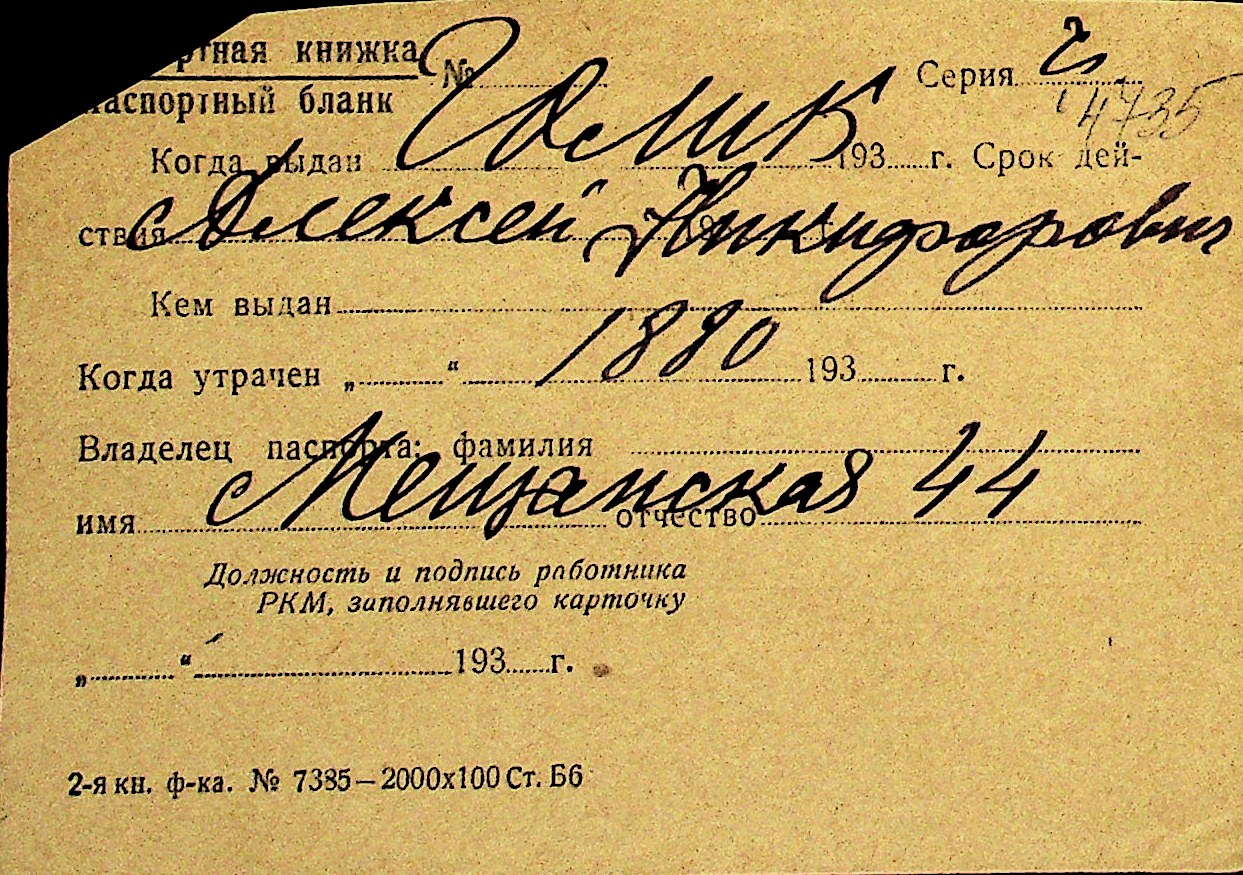 ртная книжка № Серия
4735
паспортный бланк
Когда выдан 193 г. Срок дей-
ствия
Алексей Никифорович
Кем выдан
1880
Когда утрачен „ “ 193 г.
Владелец паспорта: фамилия
Мещанская 44
имя отчество
Должность и подпись работника
РКМ, заполнявшего карточку
„ “ 193 г.
2-я кн. ф-ка. № 7385—2000х100 Ст. Б6